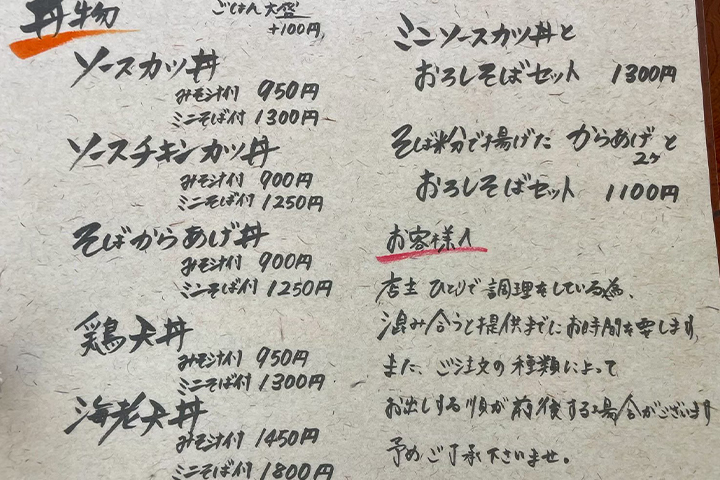 丼物
ごはん大盛
+100円
ソースカツ丼
みそ汁付 950円
ミニそば付 1300円
ソースチキンカツ丼
みそ汁付 900円
ミニそば付 1250円
そばからあげ丼
みそ汁付 900円
ミニそば付 1250円
鶏天丼
みそ汁付 950円
ミニそば付 1300円
海老天丼
みそ汁付 1450円
ミニそば付 1800円
ミニソースカツ丼と
おろしそばセット 1300円
そば粉で揚げた からあげと
2ケ
おろしそばセット 1100円
お客様へ
店主ひとりで調理をしている為、
混み合うと提供までにお時間を要します。
また、ご注文の種類によって
お出しする順が前後する場合がございます
予めご了承下さいませ。